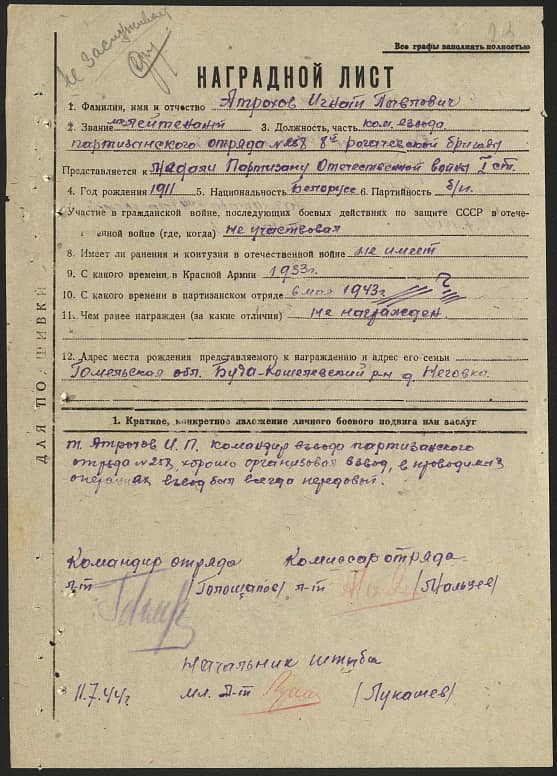 не заслуживает
23
Все графы заполнять полностью
НАГРАДНОЙ ЛИСТ
1. Фамилия, имя и отчество Атрохов Игнат Павлович
2. Звание лейтенант 3. Должность, часть ком. взвода
партизанского отряда №258 8й рогачевской бригады
Представляется к медали Партизану Отечественной войны I ст.
4. Год рождения 1911 5. Национальность Белорусс 6. Партийность б/п.
Участие в гражданской войне, последующих боевых действиях по защите СССР в отече-
енной войне (где, когда) не участвовал
8. Имеет ли ранения и контузии в отечественной войне не имеет
9. С какого времени в Красной Армии 1933г.
10. С какого времени в партизанском отряде 6 мая 1943г
11. Чем ранее награжден (за какие отличия) не награжден
12. Адрес места рождения представляемого к награждению и адрес его семьи
Гомельская обл. Буда-Кошелевский р-н д. Неговка.
ДЛЯ ПОДШИВКИ
1. Краткое, конкретное изложение личного боевого подвига или заслуг
т. Атрохов И. П. командир взвода партизанского
отряда №258, хорошо организовал взвод, в проводимых
операциях взвод был всегда передовой.
Командир отряда Комиссар отряда
л-т /Голощапов/ л-т /Мальцев/
Начальник штаба
11.7.44г. мл. л-т /Лукашев/